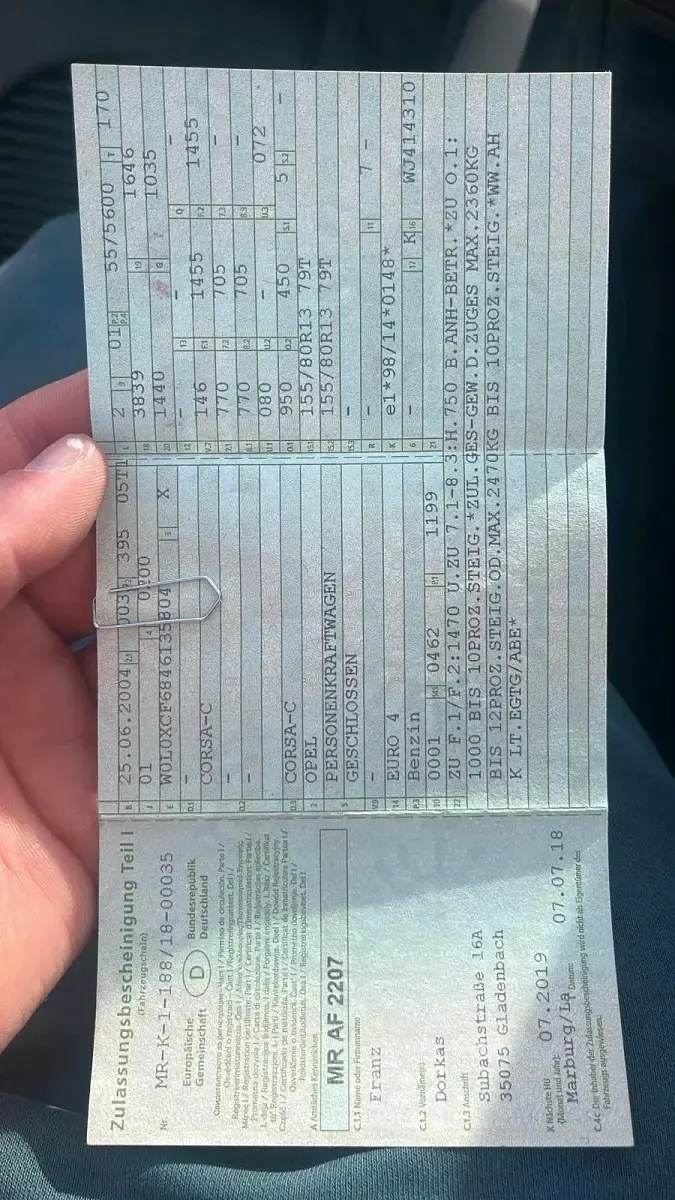 Zulassungsbescheinigung Teil I
(Fahrzeugschein)
Nr. MR-K-1-188/18-00035
Europäische Gemeinschaft
D
Bundesrepublik Deutschland
A Amtliches Kennzeichen
MR AF 2207
C.1.1 Name oder Firmenname
Franz
C.1.2 Vorname(n)
Dorkas
C.1.3 Anschrift
Subachstraße 16A
35075 Gladenbach
X Nächste HU (Monat und Jahr):
07.2019
Marburg/La
Datum:
07.07.18
C.4c Der Inhaber der Zulassungsbescheinigung wird nicht als Eigentümer des Fahrzeugs ausgewiesen.
B 25.06.2004 2.1 395
J 01 4
E 3 X
D.1 -
CORSA-C
D.2 -
-
D.3 CORSA-C
2 OPEL
5 PERSONENKRAFTWAGEN
GESCHLOSSEN
V.9 -
14 EURO 4
P.3 Benzin
10 0001 14.1 0462 P.1 1199
L 2 9 01 P.2 P.4 55/5600 T 170
18 3839 19 1646
20 1440 G 1035
12 - 13 - Q -
V.7 146 F.1 1455 F.2 1455
7.1 770 7.2 705 7.3 -
8.1 770 8.2 705 8.3 -
U.1 080 U.2 - U.3 072
O.1 950 O.2 450 S.1 5 S.2 -
15.1 155/80R13 79T
15.2 155/80R13 79T
15.3 -
R - 11 7 -
K e1*98/14*0148*
6 - 17 K 16 WJ414310
21
22 ZU F.1/F.2:1470 U.ZU 7.1-8.3:H.750 B.ANH-BETR.*ZU O.1:
1000 BIS 10PROZ.STEIG.*ZUL.GES-GEW.D.ZUGES MAX.2360KG
BIS 12PROZ.STEIG.OD.MAX.2470KG BIS 10PROZ.STEIG.*WW.AH
K LT.EGTG/ABE*